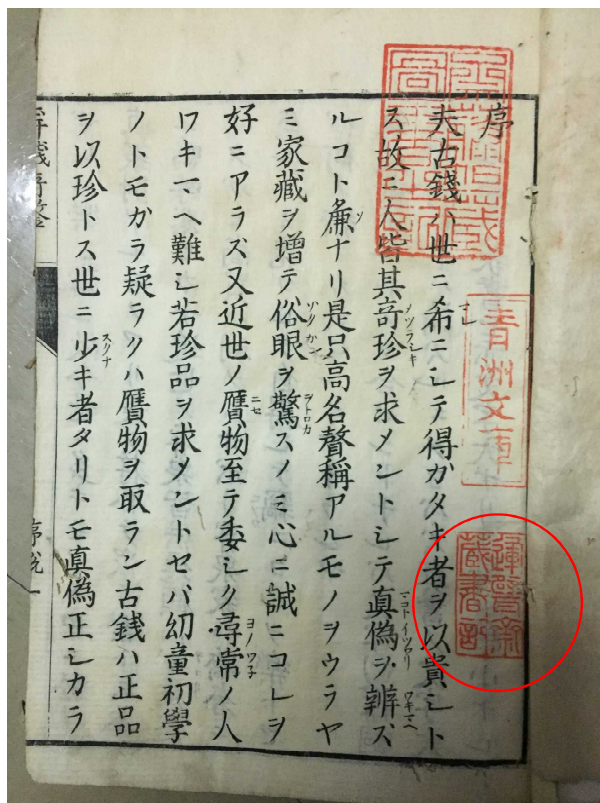 序
夫古錢ハ世ニ希ニシテ得ガタキ者ヲ以貴シト
ス故ニ人皆其奇珍ヲ求メントシテ真偽ヲ辨ズ
ルコト㢘ナリ是只高名聲稱アルモノヲウラヤ
ミ家藏ヲ增テ俗眼ヲ驚スノミ心ニ誠ニコレヲ
好ニアラズ又近世ノ贋物至テ委シク尋常ノ人
ワキマヘ難シ若珍品ヲ求メントセバ幼童初學
ノトモガラ疑ラクハ贋物ヲ取ラン古銭ハ正品
ヲ以珍トス世ニ少キ者タリトモ真偽正シカラ
青洲文庫
序説一